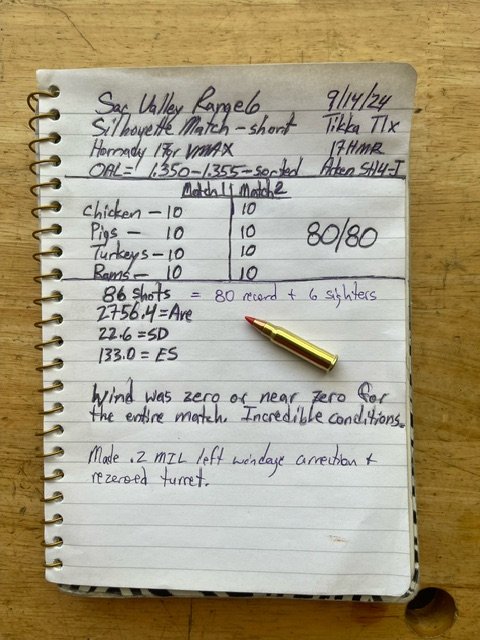 Sac Valley Range 6 9/14/24
Silhouette Match - short Tikka T1x
Hornady 17gr VMAX 17HMR
OAL= 1.350-1.355-sorted Athlon SH4-I
Match 1 Match 2
Chicken - 10 10
Pigs - 10 10
Turkeys - 10 10
Rams - 10 10
80/80
86 shots = 80 record + 6 sighters
2756.4 = Ave
22.6 = SD
133.0 = ES
Wind was zero or near zero for
the entire match. Incredible conditions.
Made .2 MIL left windage correction +
rezeroed turret.